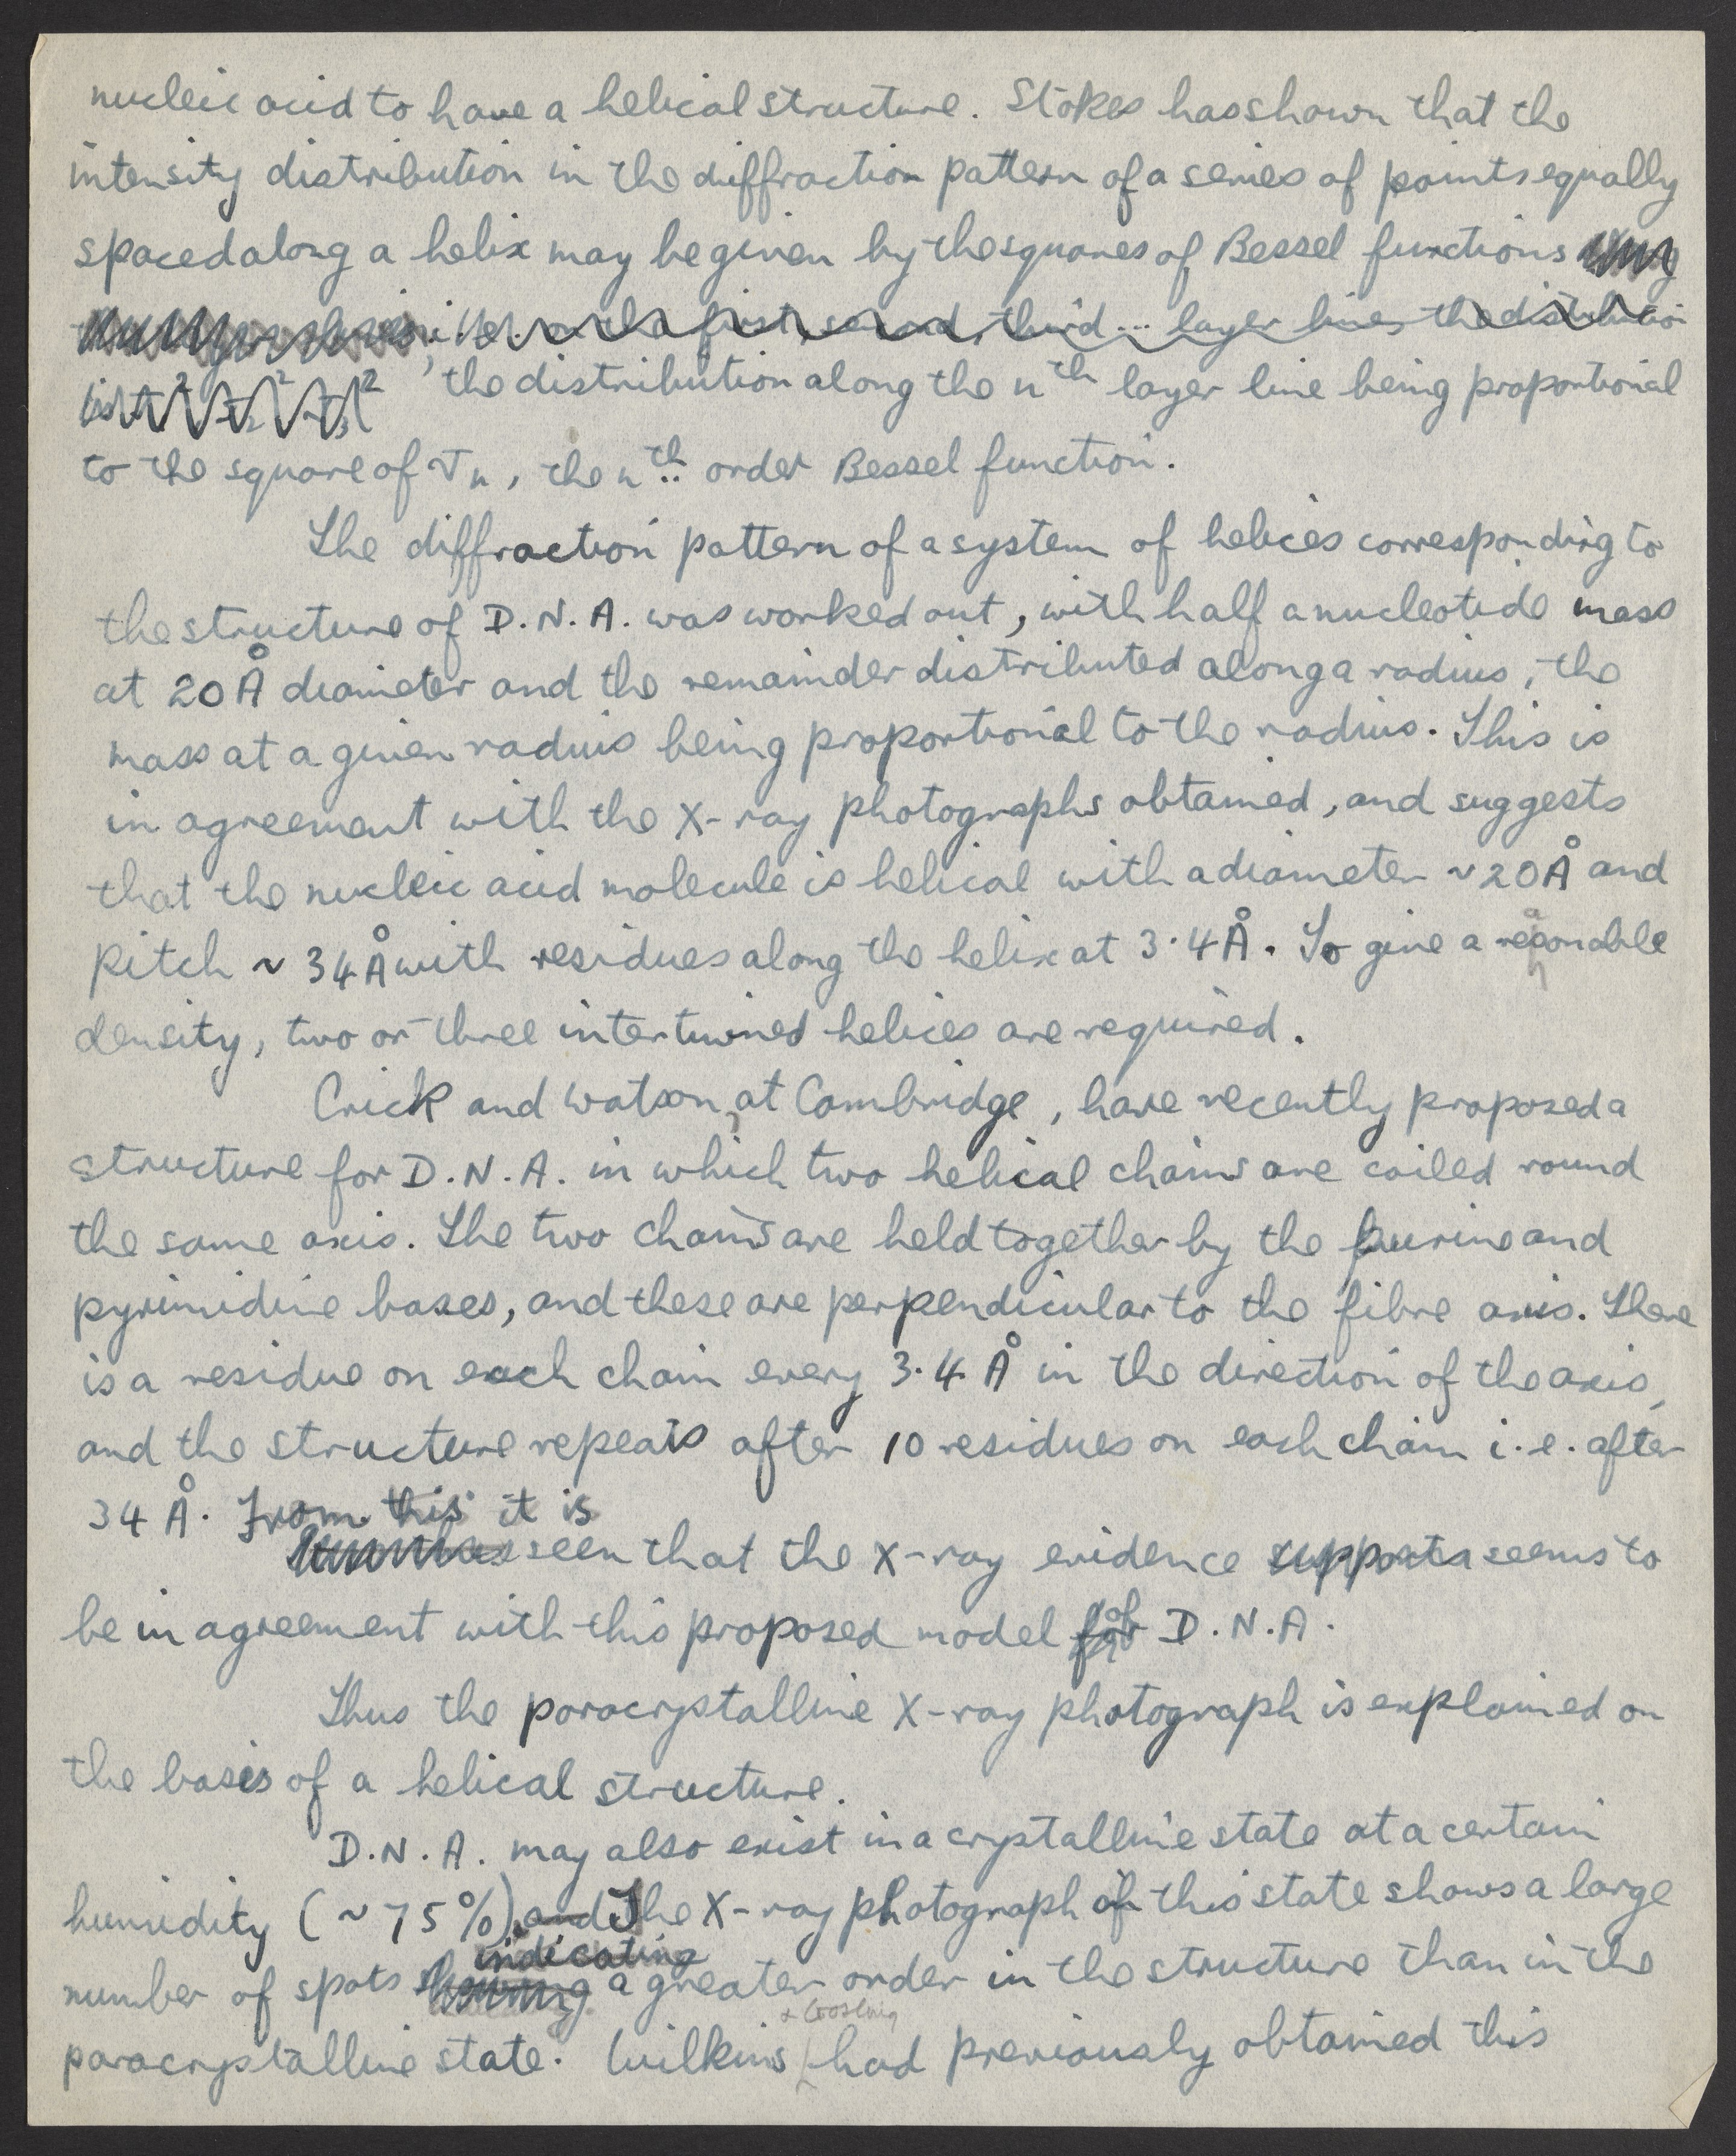 nucleic acid to have a helical structure. Stokes has shown that the
intensity distribution in the diffraction pattern of a series of points equally
spaced along a helix may be given by the squares of Bessel functions
i.e. on the first, second, third ... layer lines the distribution
, the distribution along the nth layer line being proportional
to the square of Jn, the nth order Bessel function.
The diffraction pattern of a system of helices corresponding to
the structure of D.N.A. was worked out, with half a nucleotide mass
at 20Å diameter and the remainder distributed along a radius, the
mass at a given radius being proportional to the radius. This is
in agreement with the X-ray photographs obtained, and suggests
that the nucleic acid molecule is helical with a diameter ~20Å and
pitch ~ 34Å with residues along the helix at 3.4Å. To give a reasonable
density, two or three intertwined helices are required.
Crick and Watson, at Cambridge, have recently proposed a
structure for D.N.A. in which two helical chains are coiled round
the same axis. The two chains are held together by the purine and
pyrimidine bases, and these are perpendicular to the fibre axis. There
is a residue on each chain every 3.4 Å in the direction of the axis,
and the structure repeats after 10 residues on each chain i.e. after
34 Å. From this it is
seen that the X-ray evidence supports seems to
be in agreement with this proposed model for of D.N.A.
Thus the paracrystalline X-ray photograph is explained on
the basis of a helical structure.
D.N.A. may also exist in a crystalline state at a certain
humidity (~75%). and The X-ray photograph of this state shows a large
indicating
number of spots showing a greater order in the structure than in the
+ Gosling
paracrystalline state. Wilkins had previously obtained this